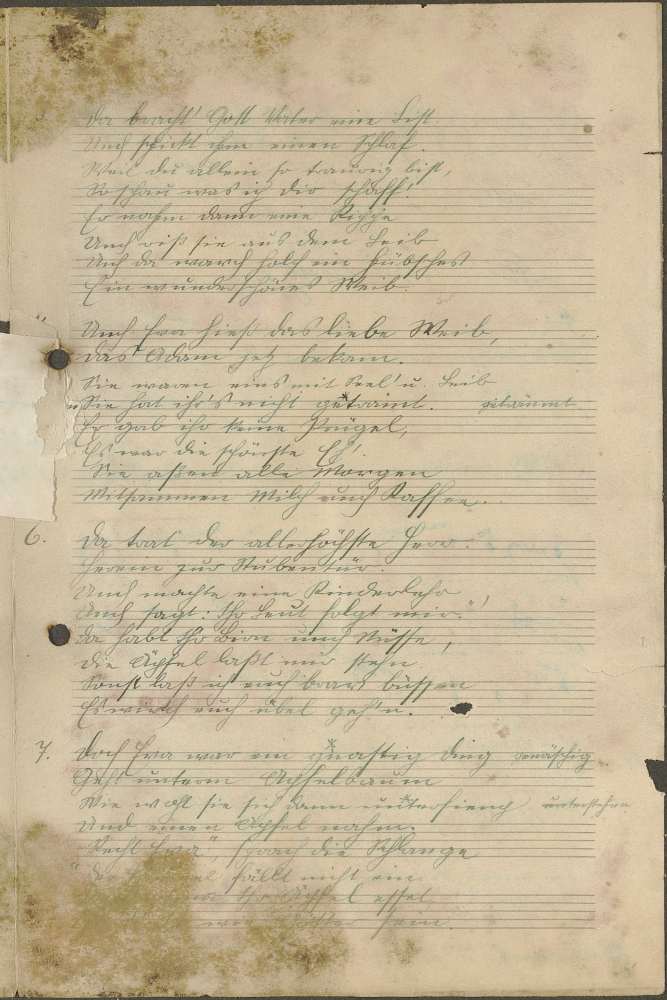 Da bracht' Gott Vater eine List.
Und schickt ihm einen Schlaf.
Weil du allein so traurig bist,
So schau was ich dir schaff!
Er nahm dann eine Rippe
Und riß sie aus dem Leib
Und da ward halt ein hübsches
Ein wunderschönes Weib.
Und Eva hieß das liebe Weib,
das Adam jetz bekam.
Sie waren eins mit Seel' u. Leib
Sie hat ihr's nicht getraimt. geträumt
Er gab ihr keine Prügel,
Es war die schönste Eh'.
Sie aßen alle Morgen
Mitsammen Milch und Kaffee.
6. Da trat der allerhöchste Herr
Herein zur Stubentür.
Und machte eine Kinderlehr
Und sagt: Ihr Leut folgt mir."
Da habt Ihr Birn und Nüsse,
die Äpfel laßt mir stehn
Sonst laß ich euch brav büssen
Es wird euch übel geh'n.
7. Doch Eva war ein gnaschig Ding genäschig
Geht unterm Apfelbaum
Wie wohl sie sich dann unterstend unterstehen
Und einen Apfel nahm.
Recht Eva", sprach die Schlange
fällt nicht ein
Ihr Äpfel esset
sein.